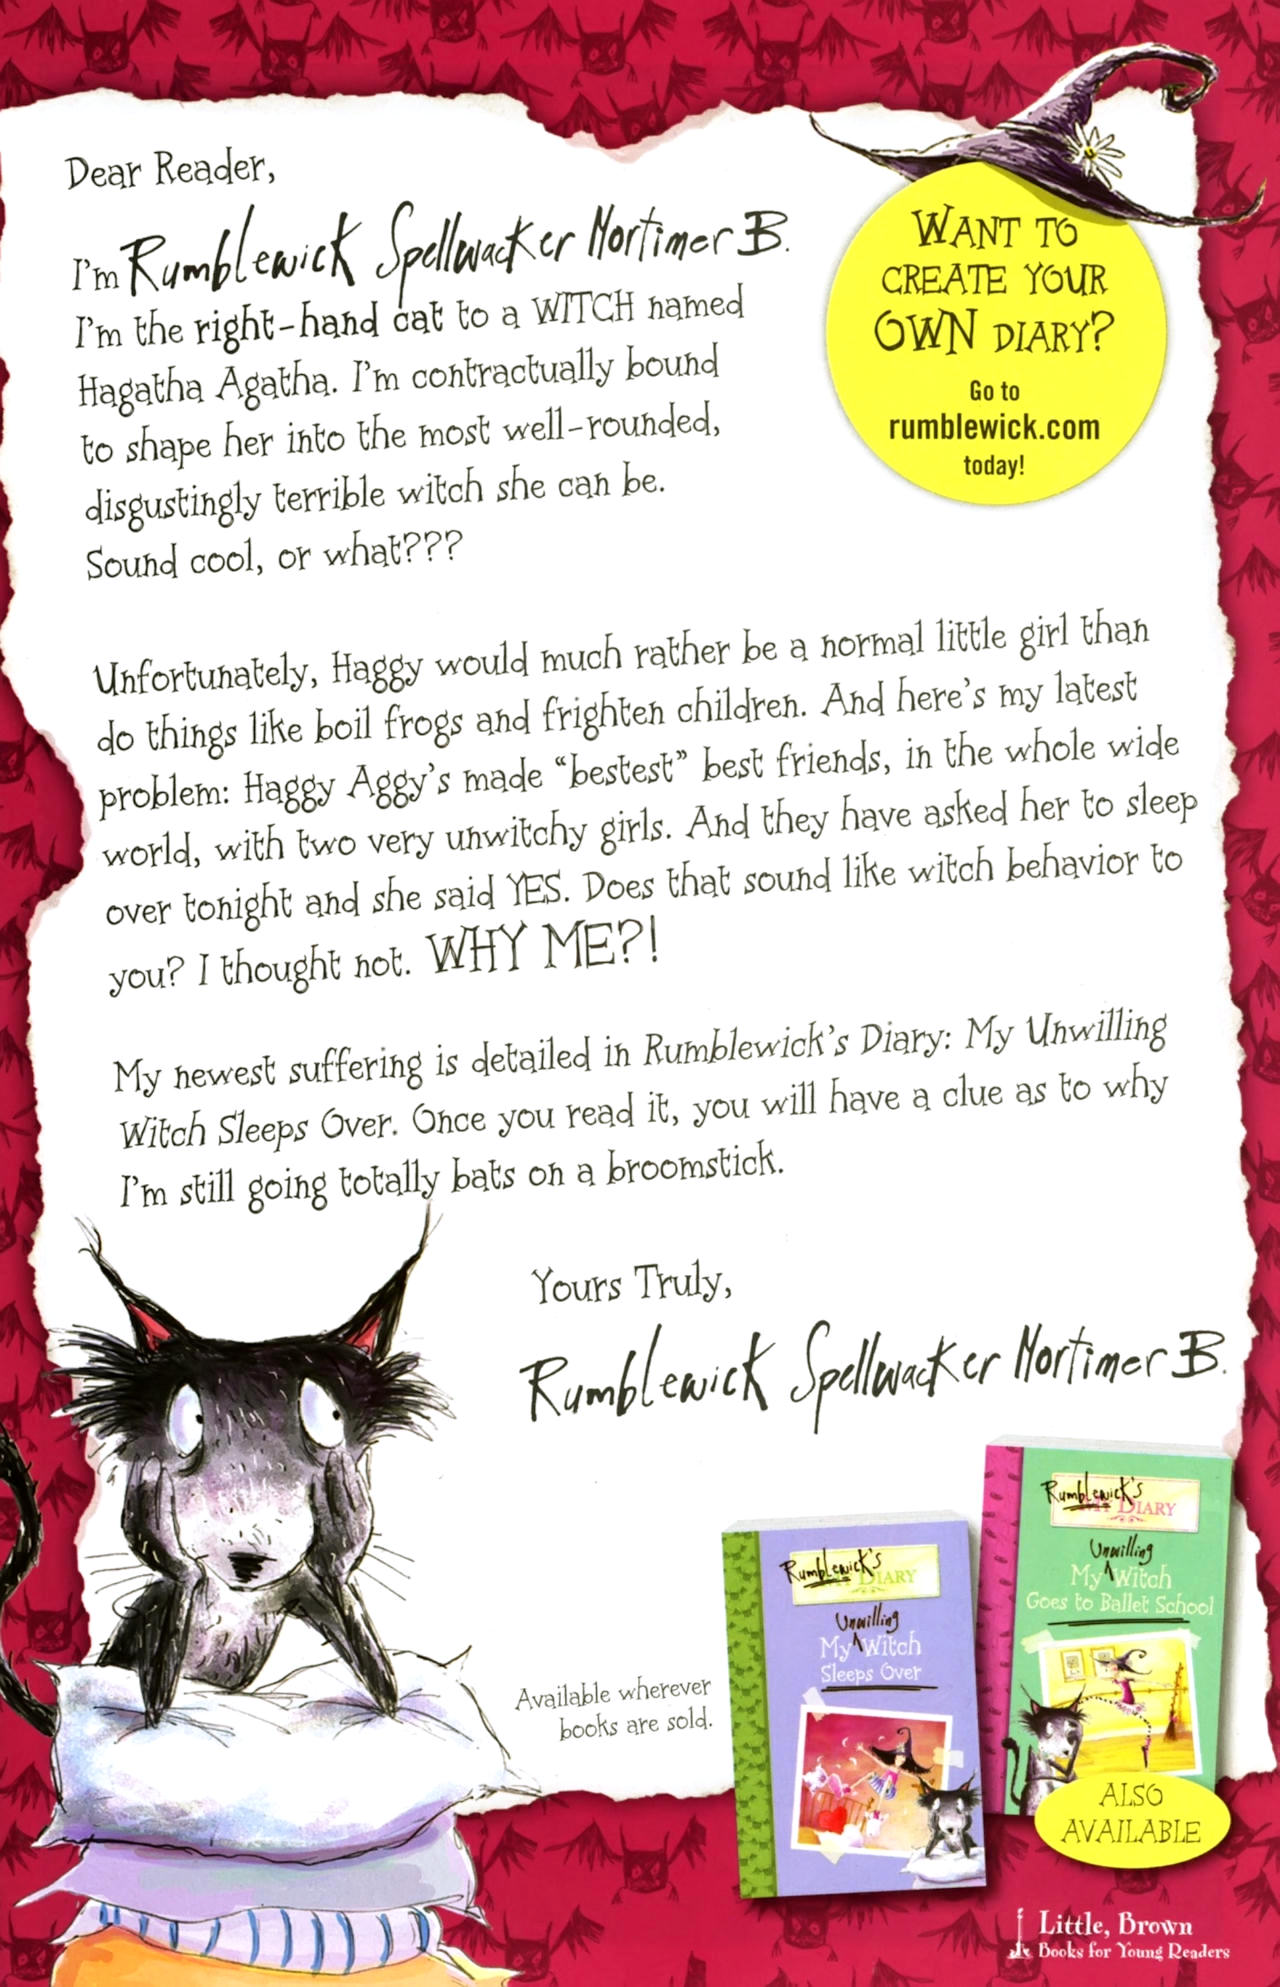 Dear Reader,
I'm Rumblewick Spellwacker Mortimer B.
I'm the right-hand cat to a WITCH named
Hagatha Agatha. I'm contractually bound
to shape her into the most well-rounded,
disgustingly terrible witch she can be.
Sound cool, or what???
WANT TO
CREATE YOUR
OWN DIARY?
Go to
rumblewick.com
today!
Unfortunately, Haggy would much rather be a normal little girl than
do things like boil frogs and frighten children. And here's my latest
problem: Haggy Aggy's made “bestest” best friends, in the whole wide
world, with two very unwitchy girls. And they have asked her to sleep
over tonight and she said YES. Does that sound like witch behavior to
you? I thought not. WHY ME?!
My newest suffering is detailed in Rumblewick's Diary: My Unwilling
Witch Sleeps Over. Once you read it, you will have a clue as to why
I'm still going totally bats on a broomstick.
Yours Truly,
Rumblewick Spellwacker Mortimer B.
Available wherever
books are sold.
Rumblewick's
MY DIARY
Unwilling
My Witch
Sleeps Over
Rumblewick's
MY DIARY
Unwilling
My Witch
Goes to Ballet School
ALSO
AVAILABLE
Little, Brown
Books for Young Readers